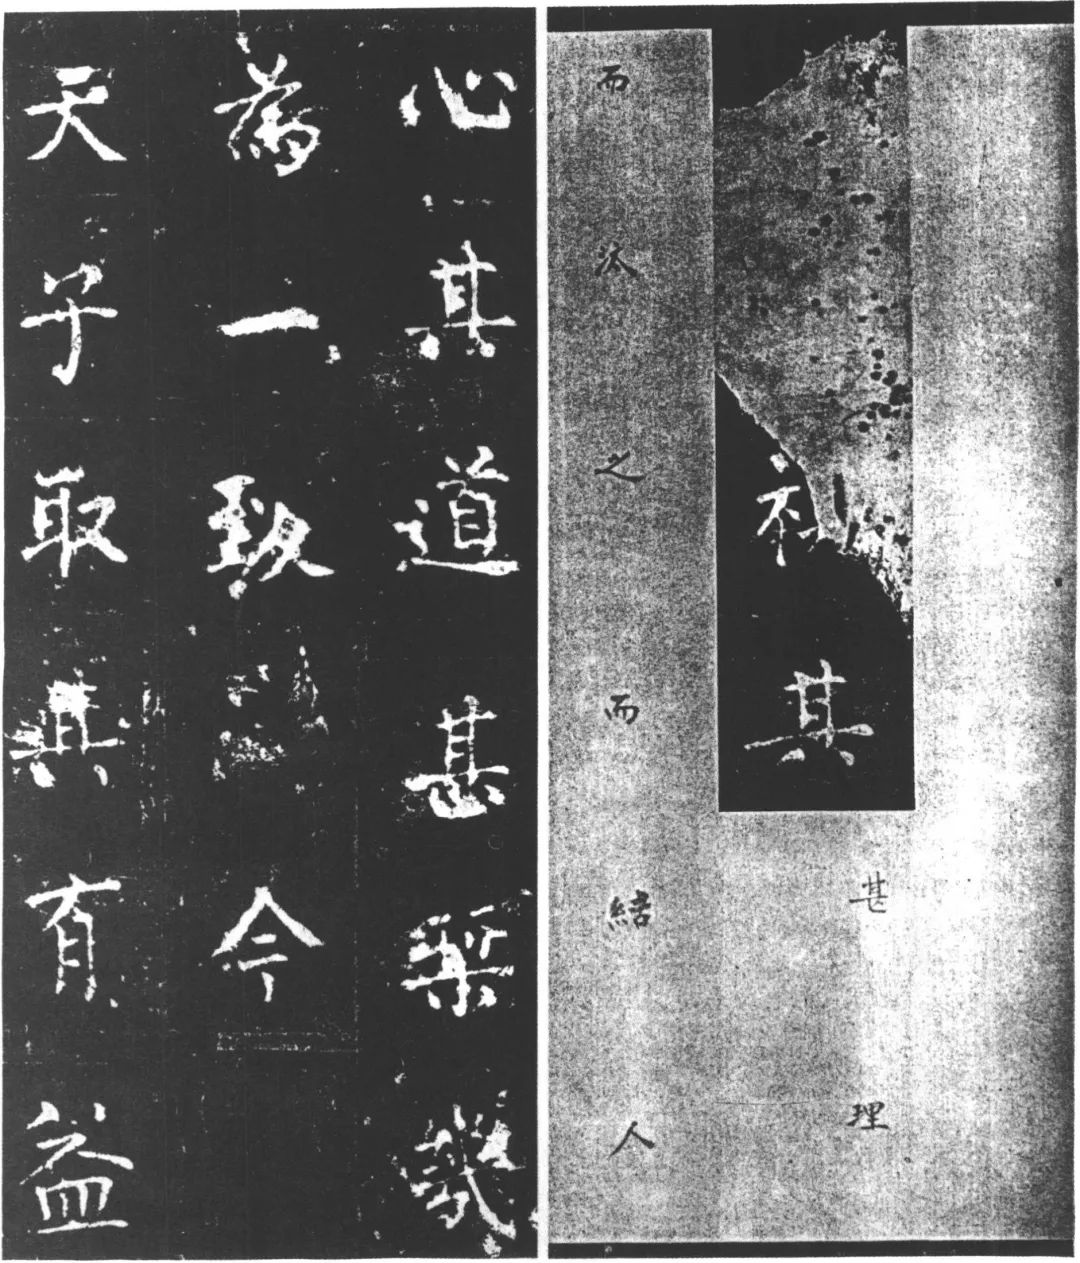 不其甚理
而之而結人
心其道甚幾
為一致今
天子取其有益